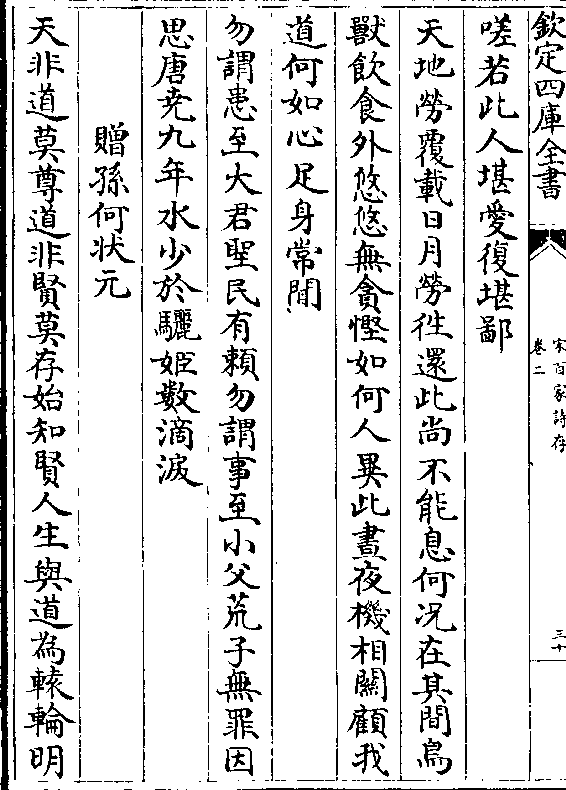 欽定四庫全書
宋百家詩存
卷二
三十
嗟若此人堪愛復堪鄙
天地勞覆載日月勞徃還此尚不能息何况在其間鳥
獸飲食外悠悠無貪慳如何人異此晝夜機相關顧我
道何如心足身常閒
勿謂患至大君聖民有賴勿謂事至小父荒子無罪因
思唐尭九年水少於驪姫數滴淚
贈孫何狀元
天非道莫尊道非賢莫存始知賢人生與道為轅輪明